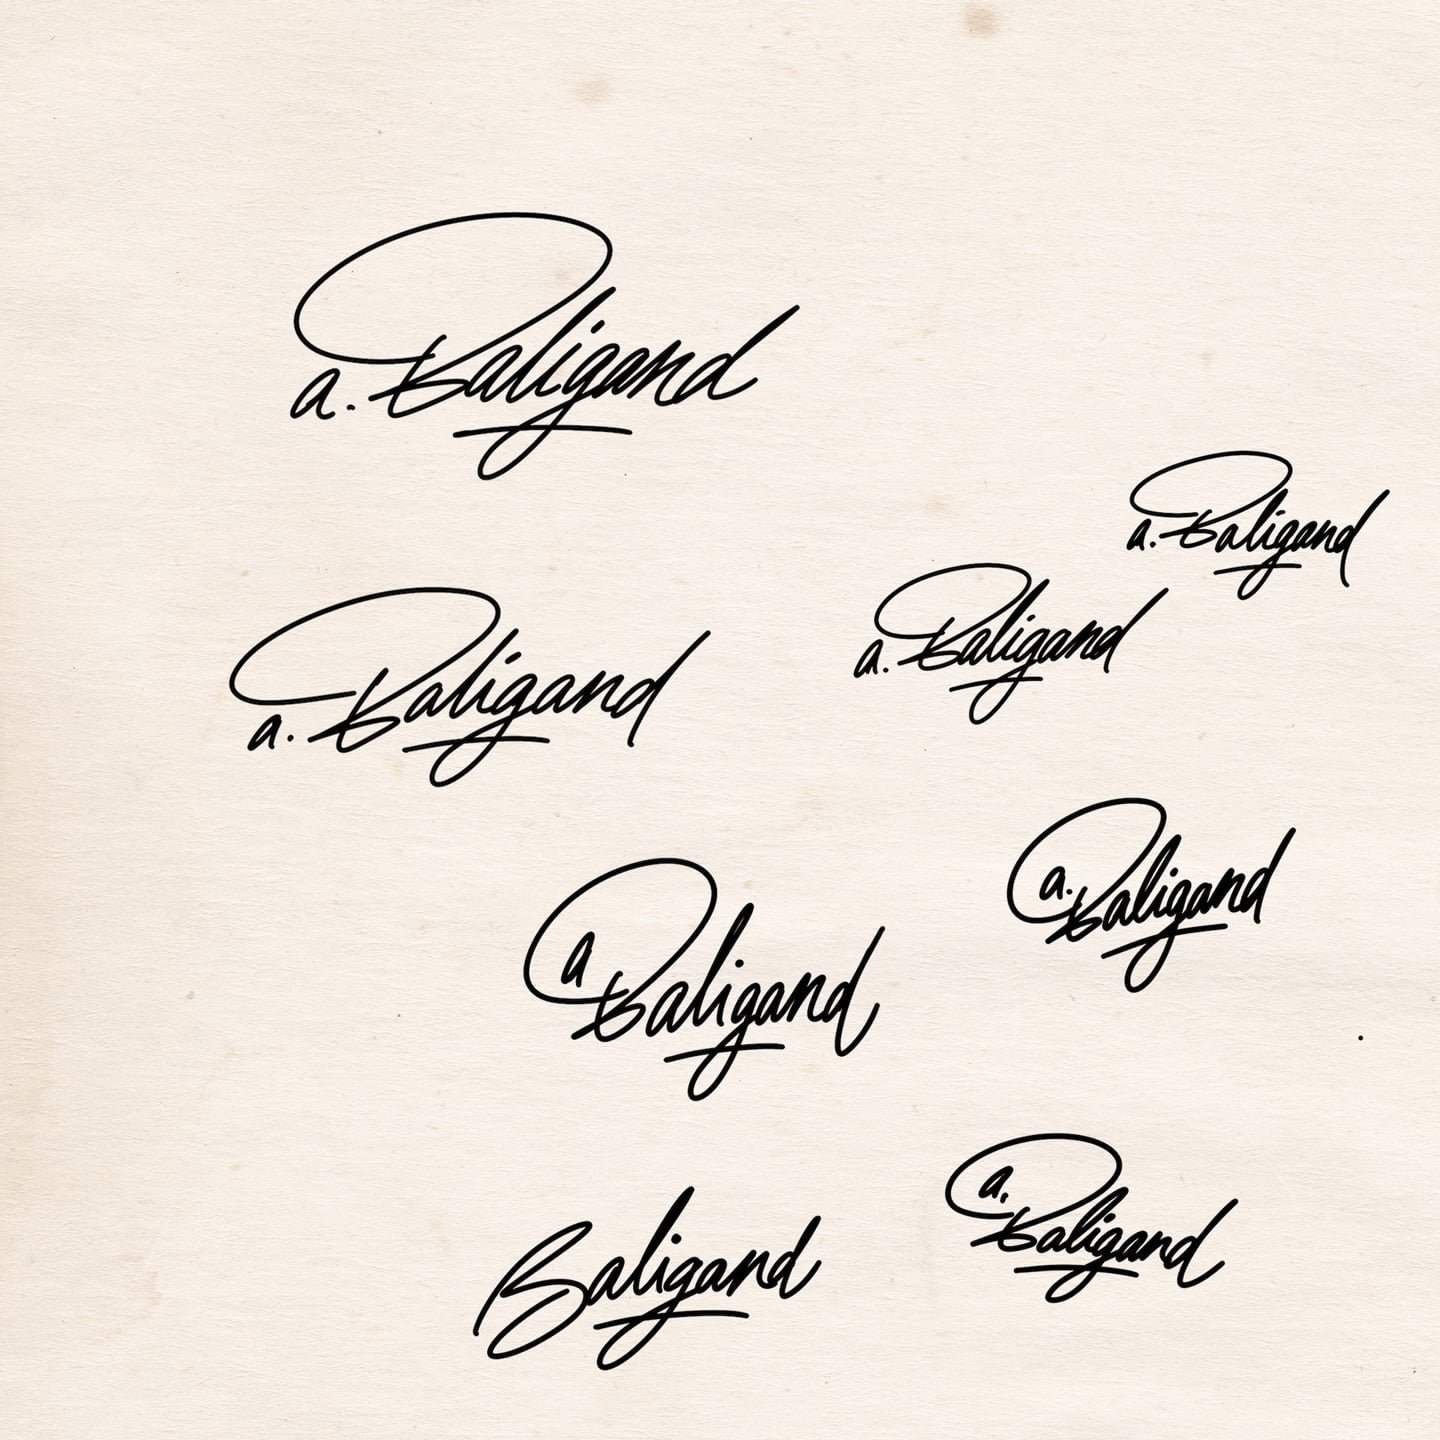 a. Baligand
a. Baligand
a. Baligand
a. Baligand
a. Baligand
a Baligand
a. Baligand
Baligand